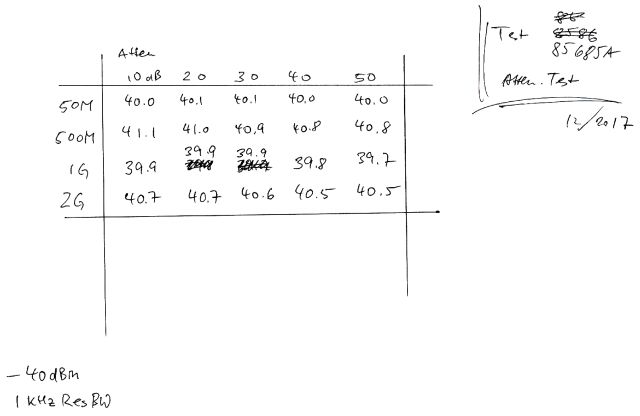 Test
85685A
Atten. Test
12/2017
Atten
10 dB 20 30 40 50
50M 40.0 40.1 40.1 40.0 40.0
500M 41.1 41.0 40.9 40.8 40.8
39.9 39.9
1G 39.9 39.8 39.7
2G 40.7 40.7 40.6 40.5 40.5
-40dBm
1 KHz Res BW